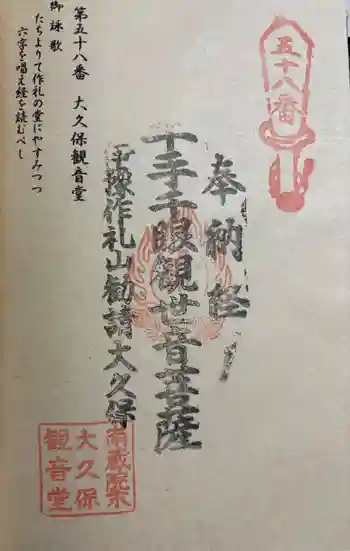 五十八番
奉納経
千手千眼観世音菩薩
予豫作礼山勧請大久保
南蔵院末
大久保
観音堂
第五十八番　大久保観音堂
御詠歌
たちよりて作礼の堂にやすみつつ
六字を唱え経を読むべし